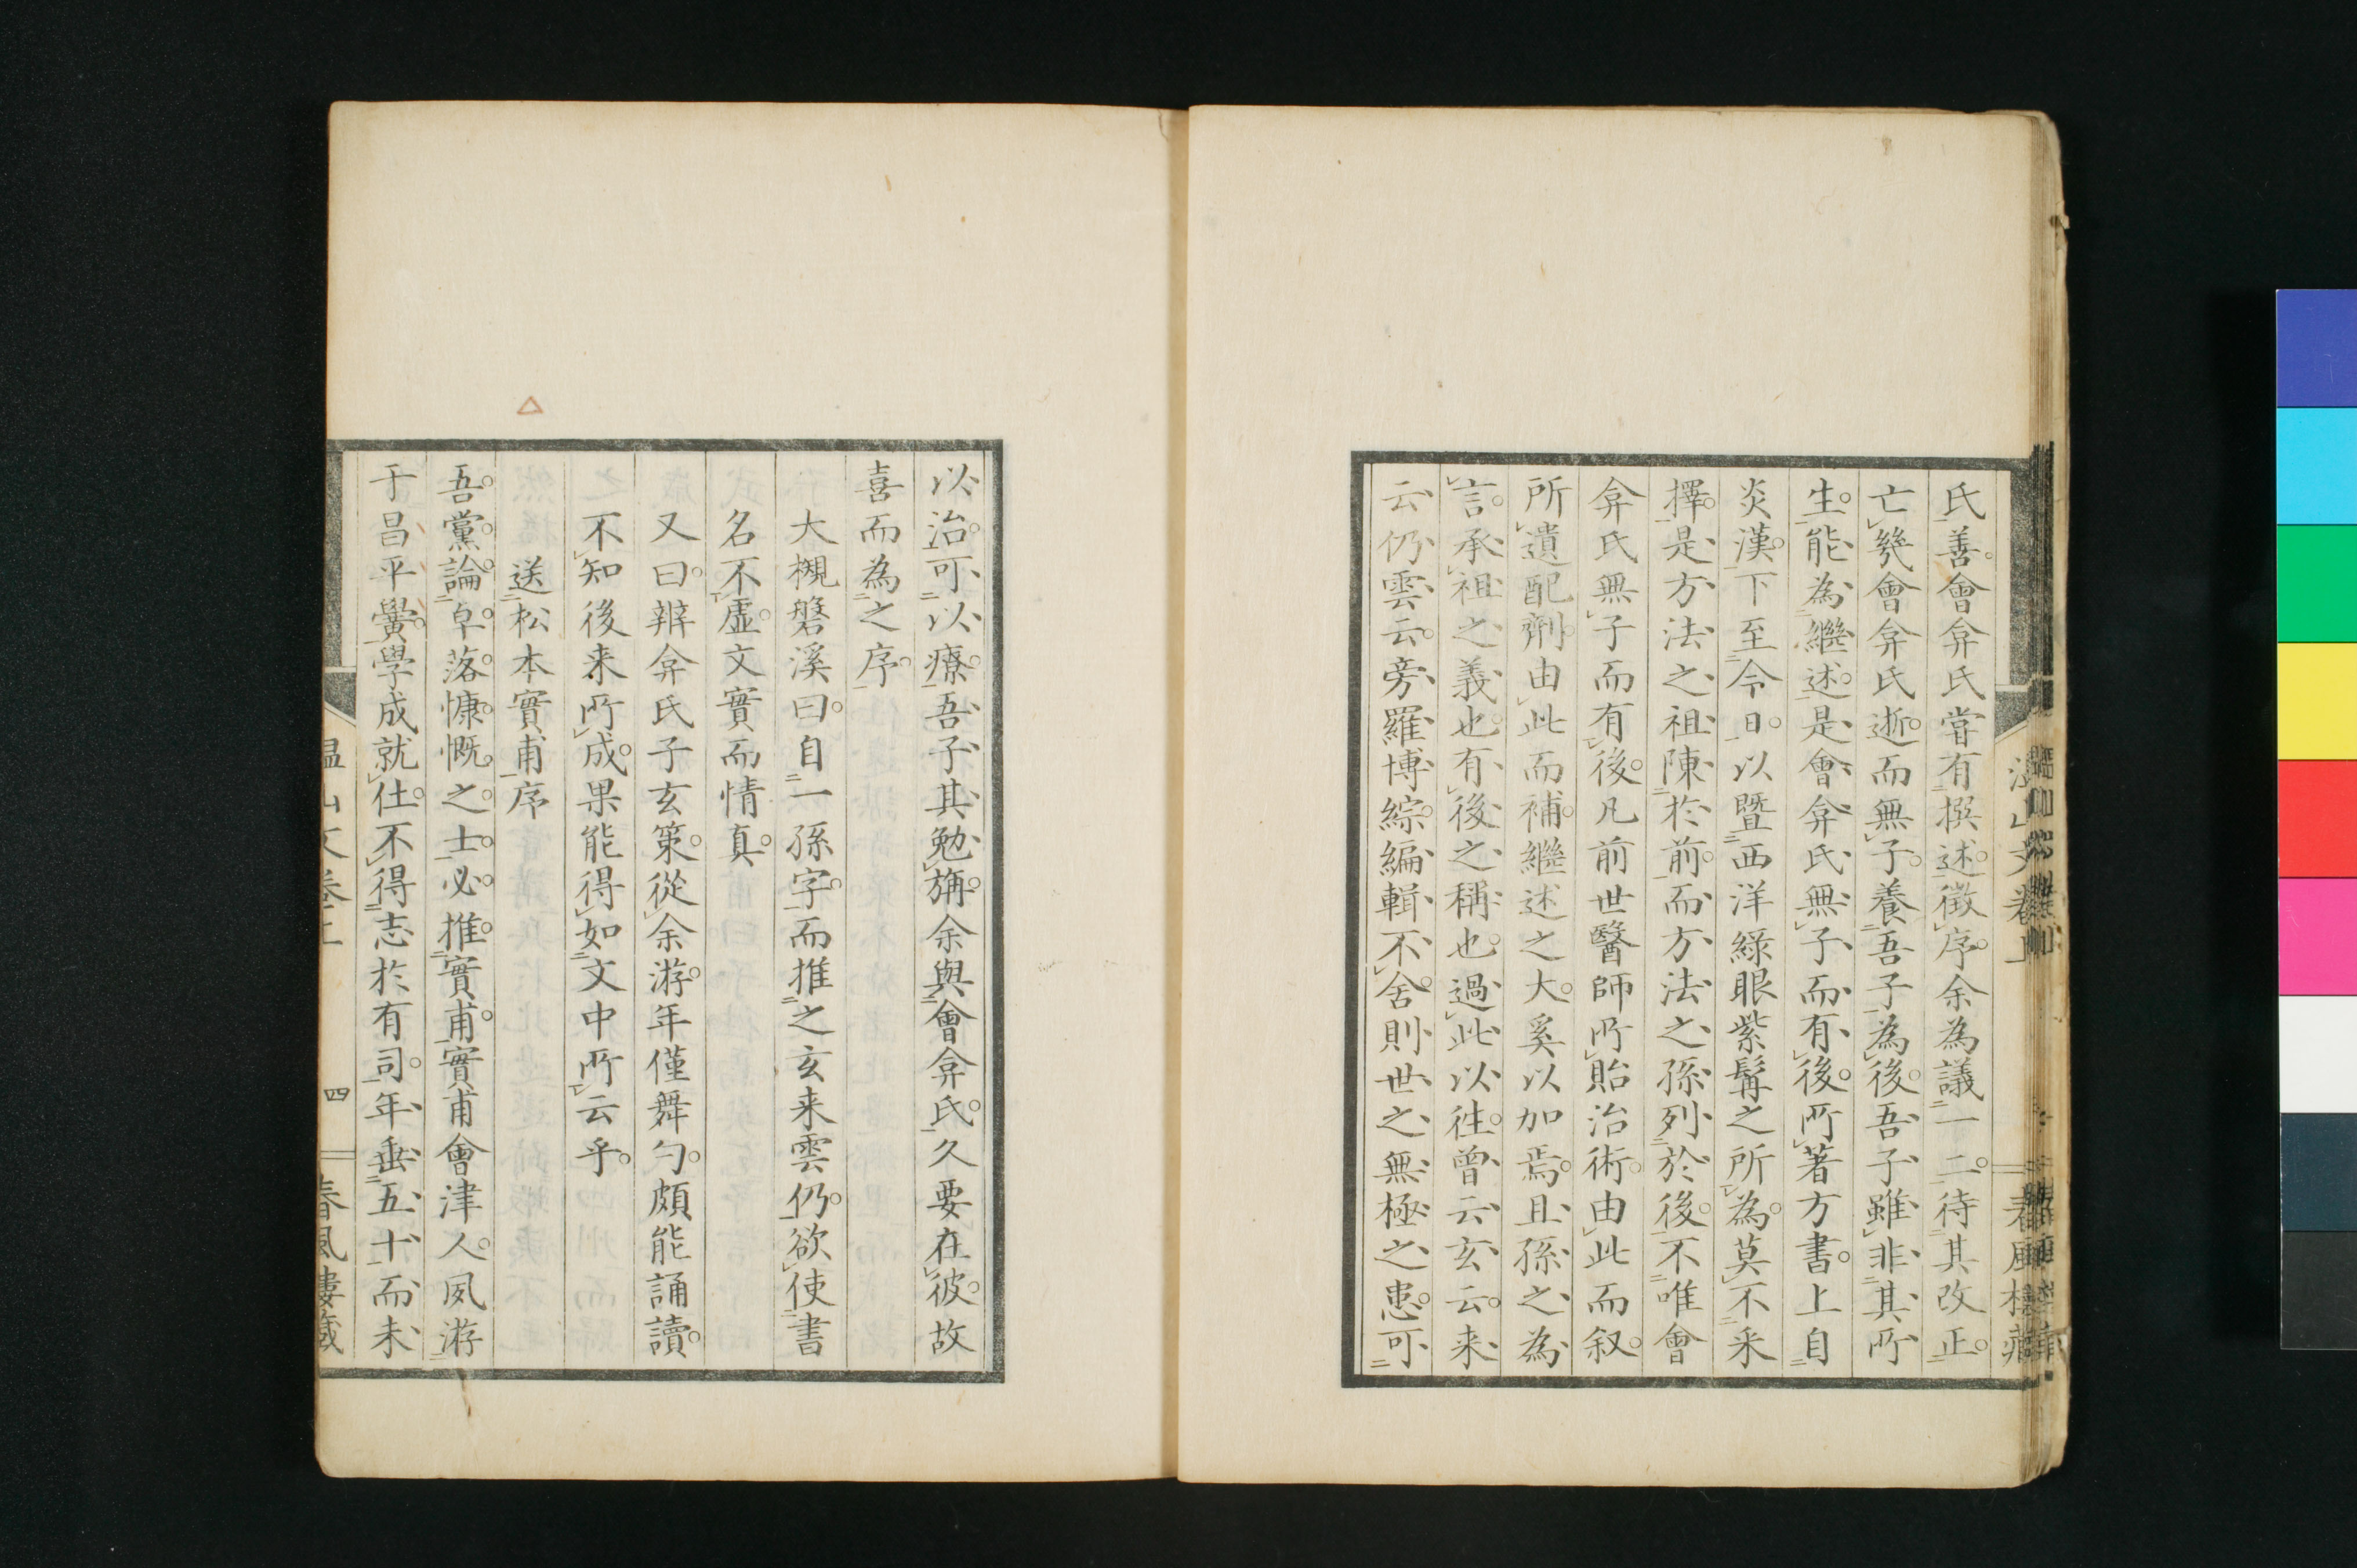 氏善會弇氏嘗有撰述徵序余為議一二待其改正
亡幾會弇氏逝而無子養吾子為後吾子雖非其所
生能為繼述是會弇氏無子而有後所著方書上自
炎漢下至今日以暨西洋綠眼紫髯之所為莫不采
擇是方法之祖陳於前而方法之孫列於後不唯會
弇氏無子而有後凡前世醫師所貽治術由此而叙
所遺配劑由此而補繼述之大奚以加焉且孫之為
言承祖之義也有後之稱也過此以徃曾云玄云来
云仍雲云旁羅博綜編輯不舍則世之無極之患可
以治可以療吾子其勉旃余與會弇氏久要在彼故
喜而為之序
大槻磐溪曰自一孫字而推之玄来雲仍欲使書
名不虛文實而情真
又曰辨弇氏子玄策從余游年僅舞勺頗能誦讀
不知後来所成果能得如文中所云乎
送松本實甫序
吾黨論卓落慷慨之士必推實甫實甫會津人夙游
于昌平黌學成就仕不得志於有司年垂五十而未
四
春風樓藏